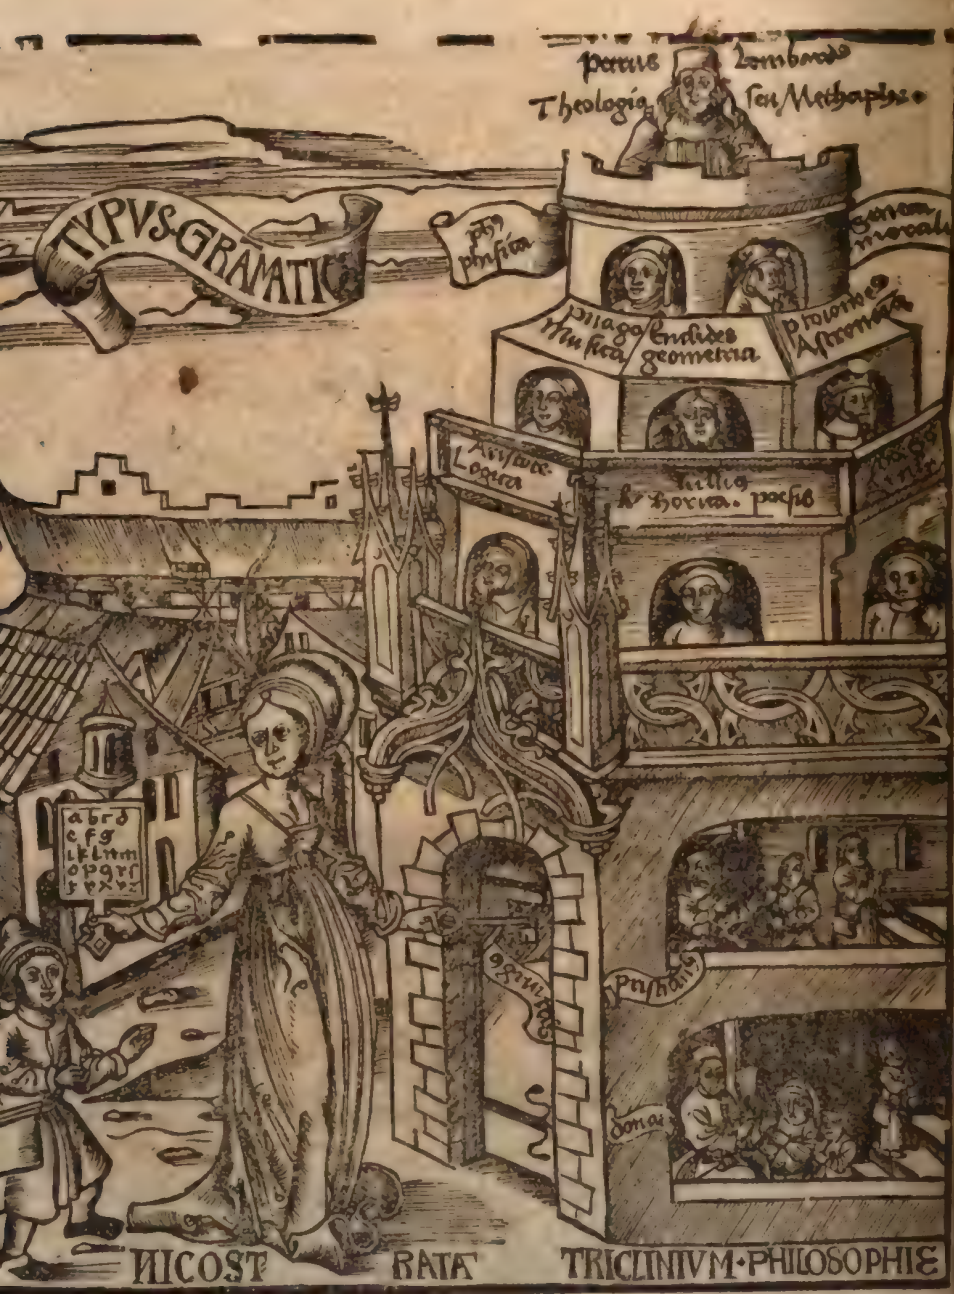 Petrus Lombardꝰ
Theologia seu Methaphs.
TYPVS·GRAMATIC
phꝰ
phisica
senem
morali
pitago
Musica
Euclides
geometria
ptolome
Astronomia
Aristote.
Logica
Tullius
Rhorica. poesis
abcd
efg
iklnm
opqrs
priscianꝰ
donat
NICOSTRATA
TRICLINIVM·PHILOSOPHIE